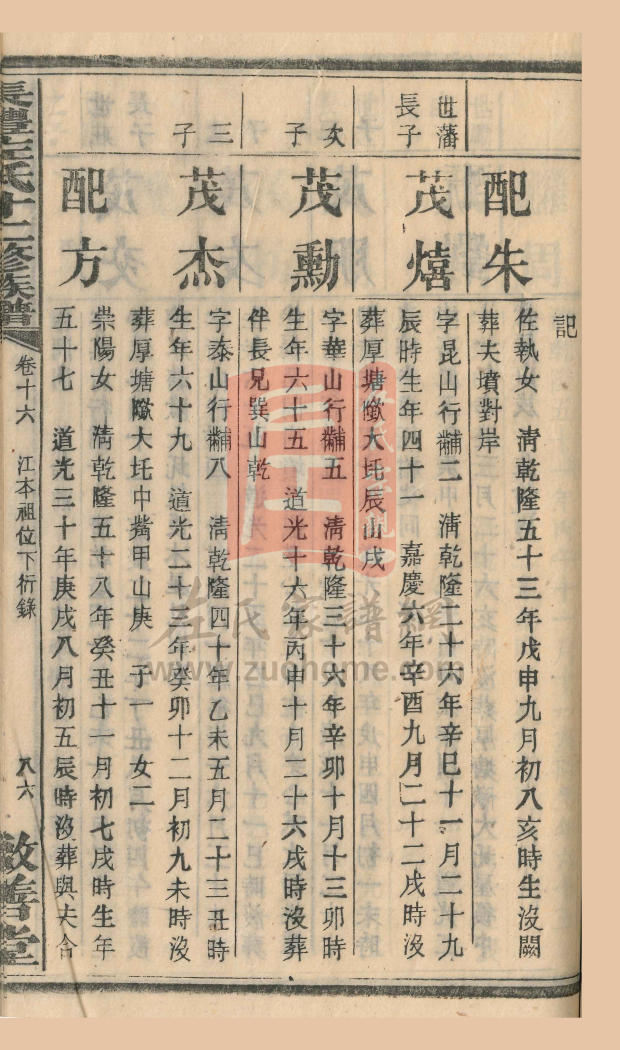 記
配朱
佐執女　清乾隆五十三年戊申九月初八亥時生沒闕
葬夫墳對岸
世藩
長子
茂熺
字昆山行黼二　清乾隆二十六年辛巳十一月二十九
辰時生年四十一　嘉慶六年辛酉九月二十二戌時沒
葬厚塘大坵辰山戌
次子
茂勳
字華山行黼五　清乾隆三十六年辛卯十月十三卯時
生年六十五　道光十六年丙申十月二十六戌時沒葬
伴長兄巽山乾
三子
茂杰
字泰山行黼八　清乾隆四十年乙未五月二十三丑時
生年六十九　道光二十三年癸卯十二月初九未時沒
葬厚塘大坵中觜甲山庚　子一　女二
配方
崇陽女　清乾隆五十八年癸丑十一月初七戌時生年
五十七　道光三十年庚戌八月初五辰時沒葬與夫合
長澧左氏十二修族譜
卷十六　江本祖位下衍錄
八六
敬善堂
左氏家譜網
www.zuohome.com